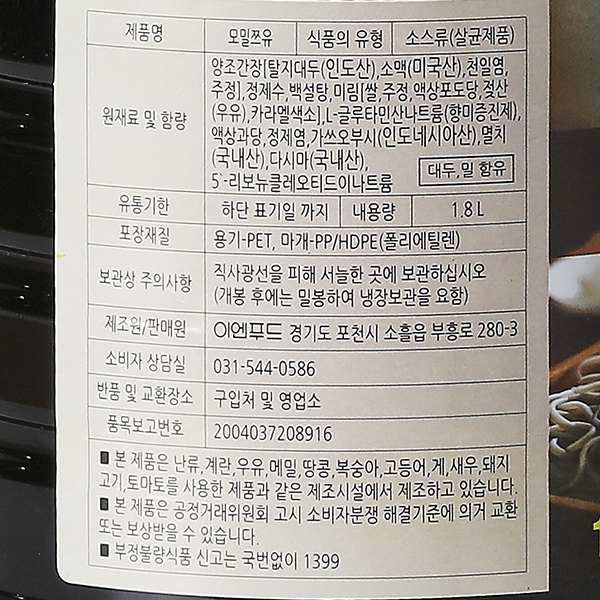 제품명 모밀쯔유 식품의 유형 소스류(살균제품)
원재료 및 함량
양조간장[탈지대두(인도산),소맥(미국산),천일염,
주정],정제수,백설탕,미림[쌀,주정,액상포도당,젖산
(우유),카라멜색소],L-글루타민산나트륨(향미증진제),
액상과당,정제염,가쓰오부시(인도네시아산),멸치
(국내산),다시마(국내산),
5`-리보뉴클레오티드이나트륨
대두,밀 함유
유통기한 하단 표기일 까지 내용량 1.8 L
포장재질 용기-PET, 마개-PP/HDPE(폴리에틸렌)
보관상 주의사항
직사광선을 피해 서늘한 곳에 보관하십시오
(개봉 후에는 밀봉하여 냉장보관을 요함)
제조원/판매원 이엔푸드 경기도 포천시 소흘읍 부흥로 280-3
소비자 상담실 031-544-0586
반품 및 교환장소 구입처 및 영업소
품목보고번호 2004037208916
■ 본 제품은 난류,계란,우유,메밀,땅콩,복숭아,고등어,게,새우,돼지
고기,토마토를 사용한 제품과 같은 제조시설에서 제조하고 있습니다.
■ 본 제품은 공정거래위원회 고시 소비자분쟁 해결기준에 의거 교환
또는 보상받을 수 있습니다.
■ 부정불량식품 신고는 국번없이 1399